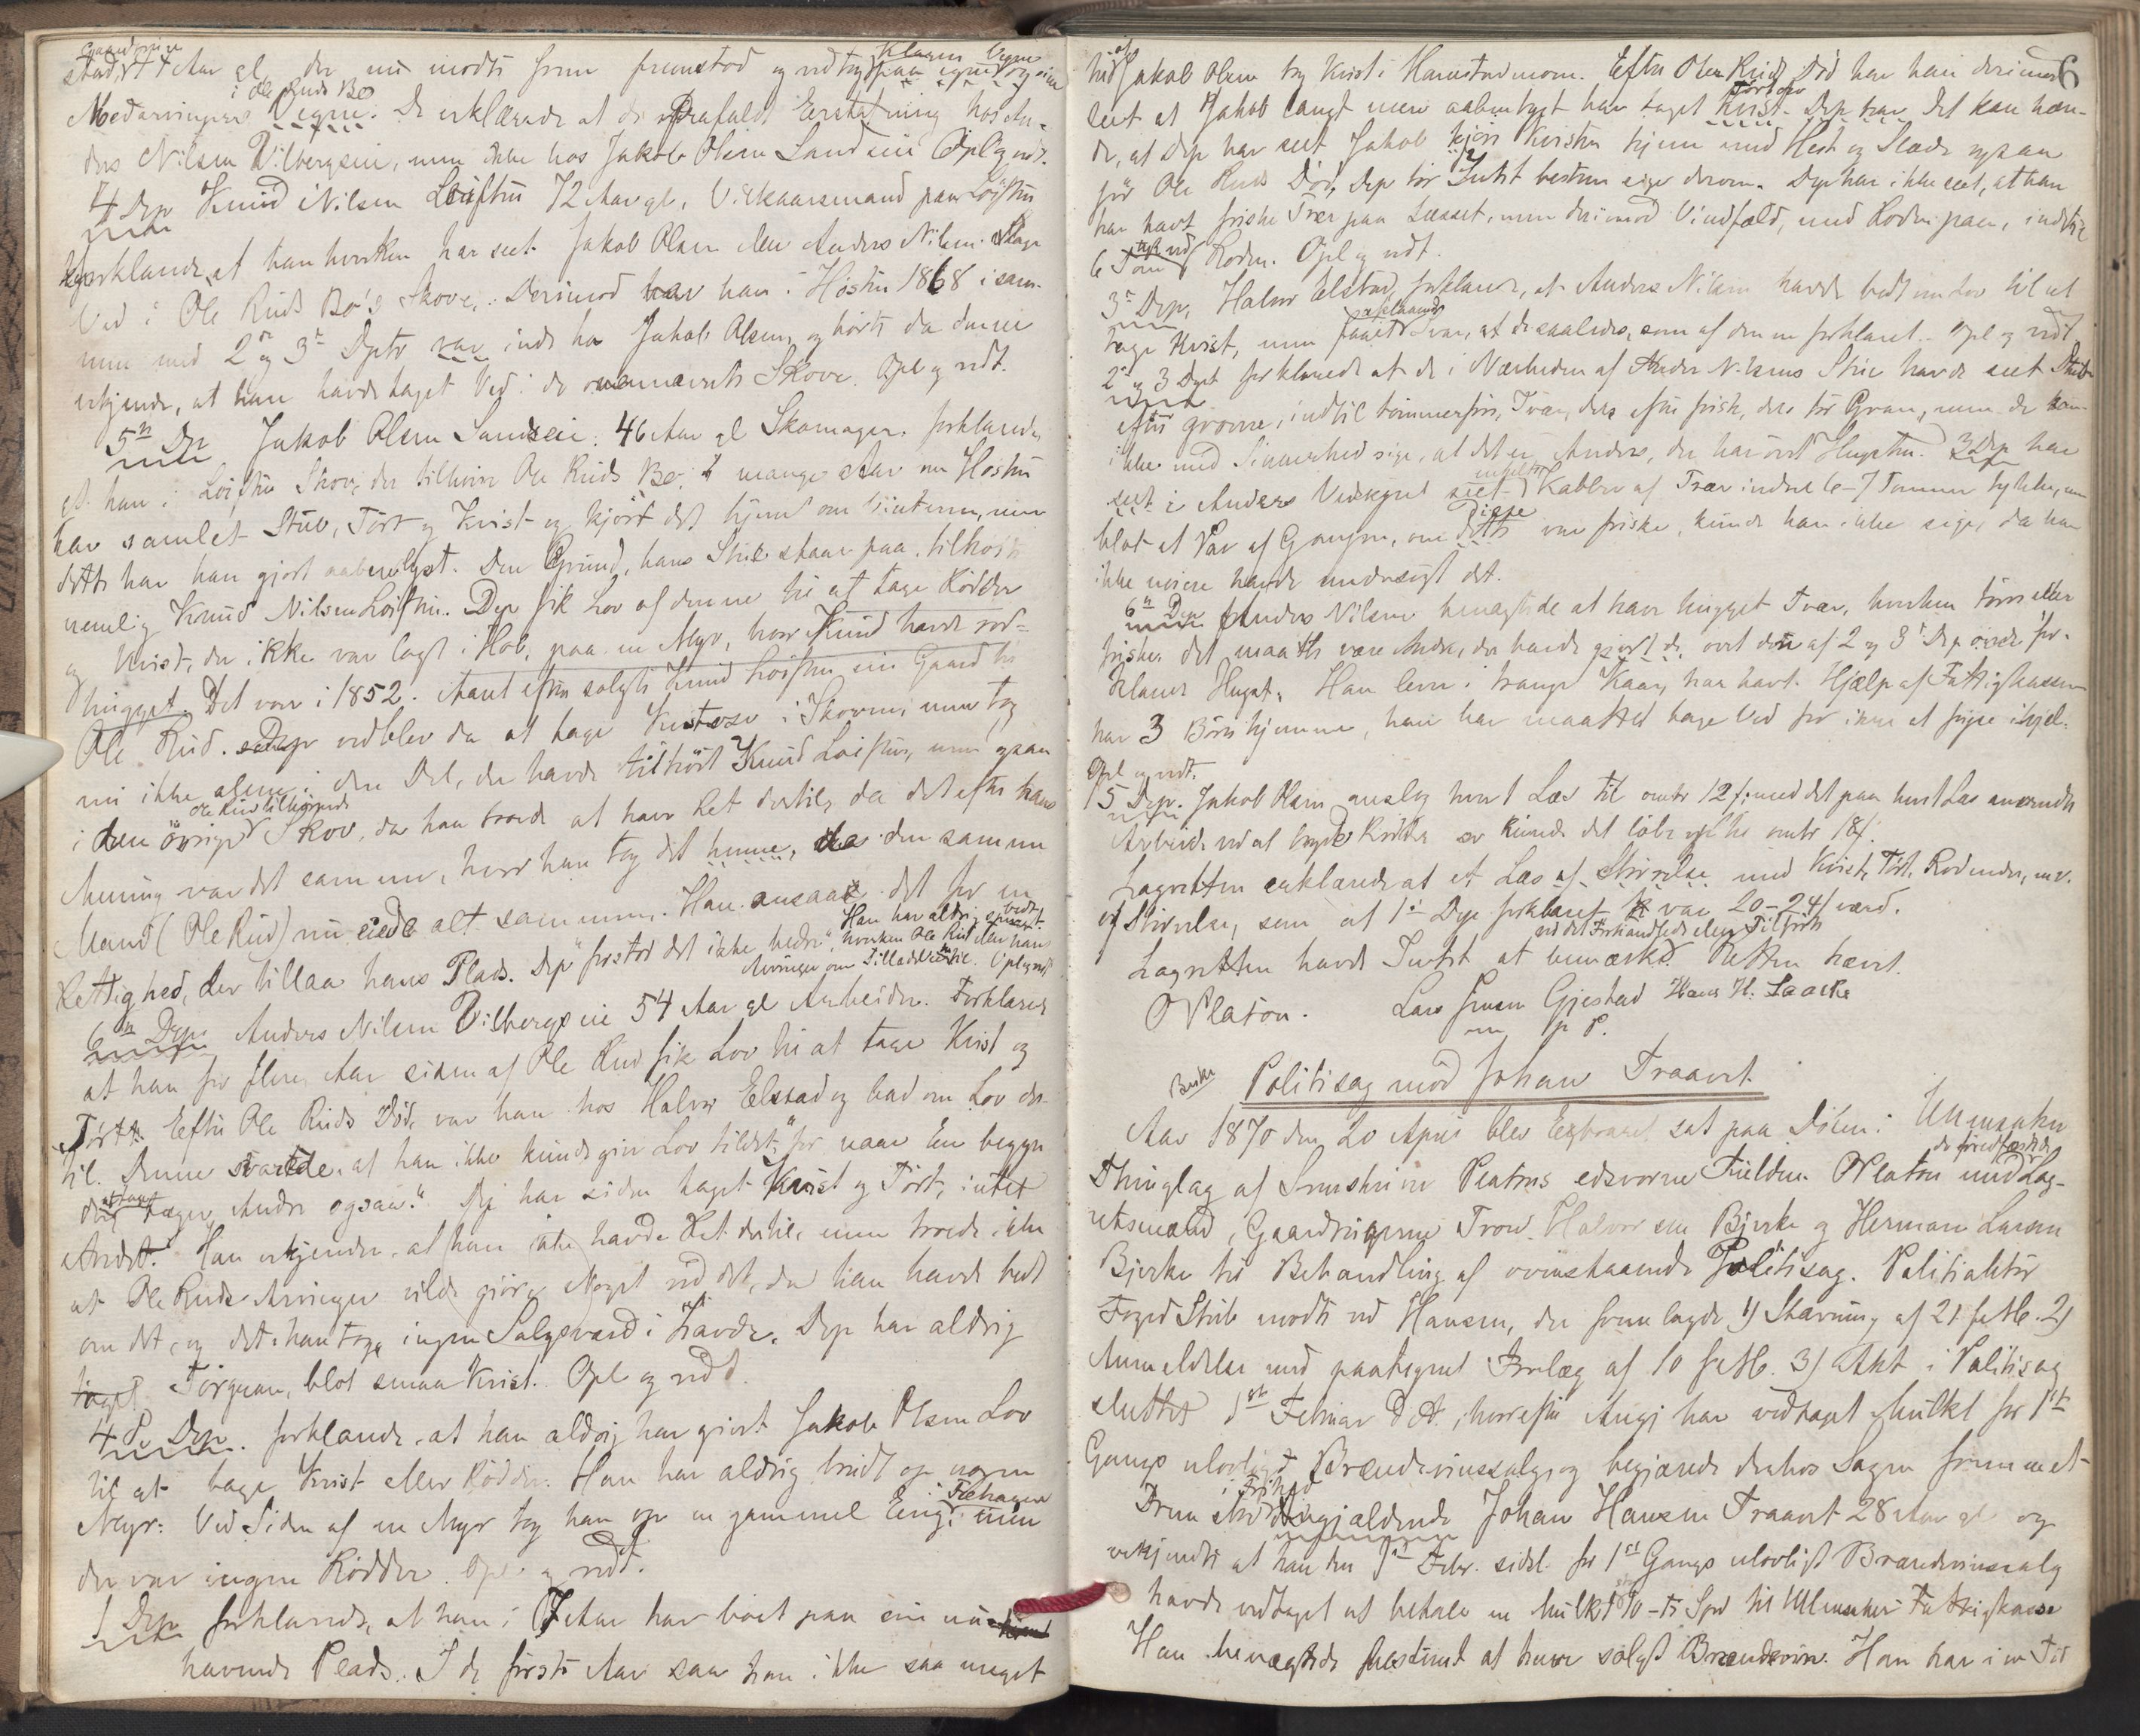 Gaardbruger
stad, 44 Aar gl der nu mødte frem fremstod og vedtog paa egne og sine
Klagen Vegne
i Ole Ruds Bo
Medarvingers Vegne. De erklærede at de frafaldt Erstatning hos An-
ders Nilsen Vilbergseie, men ikke hos Jakob Olsen Sandseie Opl og vedt.
4 Dep Knud Nilsen Løiften 72 Aar gl, Vilkaarsmand paa Løiften
forklarede, at han hverken har seet Jakob Olsen eller Anders Nilsen tage
Ved i Ole Ruds Bo's Skove. Derimod var han i Høsten 1868 i sam-
men med 2n og 3e Dpter var inde hos Jakob Olsen, og hørte da denne
erkjende, at han havde taget Ved i de omnævnte Skove. Opl og vedt.
5n Dep Jakob Olsen Sandseie, 46 Aar gl Skomager, forklarede
at han i Løiften Skov, der tilhører Ole Ruds Bo, i mange Aar om Høsten
har samlet Stub, Tørt og Kvist og kjørt det hjem om Vinteren, men
dette har han gjort aabenlyst. Den Grund, hans Stue staar paa, tilhørte
nemlig Knud Nilsen Løiften. Dep fik Lov af denne til at tage Rødder
og Kvist, der ikke var lagt i Hob, paa en Myr, hvor Knud havde rod-
hugget. Det var i 1852. Aaret efter solgte Knud Løiften sin Gaard til
Ole Rud. Dep vedblev da at tage Kvist osv i Skoven, men tog
nu ikke alene i den Del, der havde tilhørt Knud Løiften, men ogsaa
Ole Rud tilhørende
i den øvrige Skov, da han troede at have Ret dertil, da det efter hans
Mening var det samme, hvor han tog det henne, da den samme
Mand (Ole Rud) nu eiede alt sammen. Han ansaa det for en
Rettighed, der tillaa hans Plads. Dep "forstod det ikke bedre". Han har aldrig spurgt
hverken Ole Rud eller hans
Arvinger om Tilladelse. Opl og vedt
6n Dep. Anders Nilsen Vilbergseie 54 Aar gl Arbeider. Forklarer
at han for flere Aar siden af Ole Rud fik Lov til at tage Kvist og
Tørt. Efter Ole Ruds Død, var han hos Halvor Elstad og bad om Lov der-
til. Denne svarede, at han ikke kunde give Lov til det, "for naar En begyn
der, tager Andre ogsaa." Dep har siden taget Kvist og Tørt, intet
Andet. Han erkjender, at han ikke havde Ret dertil, men troede ikke
at Ole Ruds Arvinger vilde gjøre Noget ved det, da han havde bedt
om det, og det han tog, ingen Salgsværd i havde. Dep har aldrig
taget Tørgran, blot smaa Kvist. Opl og vedt.
4 Dep. forklarede, at han aldrig har givet Jakob Olsen Lov
til at tage Kvist eller Rødder. Han har aldrig brudt op nogen
Myr. Ved Siden af en Myr tog han op en gammel Eng, men
der var ingen Rødder. Opl og vedt.
1 Dep forklarede, at han i 7 Aar har boet paa sin nu
havende Plads. I de første Aar saa han ikke saa meget
6
til, at Jakob Olsen tog Kvist i Hanestadmoen. Efter Ole Ruds Død har han derimod
seet at Jakob langt mere aabenlyst har taget Kvist. Dep har Det kan hæn-
de, at Dep har seet Jakob kjøre Kvisten hjem med Hest og Slæde ogsaa
før Ole Ruds Død, Dep tør Intet bestemt sige derom. Dep har ikke seet, at han
har havt friske Trær paa Læsset, men derimod Vindfald, med Roden paa, indtil
6 Tom ved Roden. Opl og vedt.
3e Dep, Halvor Elstad, forklarer, at Anders Nilsen havde bedt om Lov til at
tage Kvist, men faaet Svar, at de saaledes, som af denne forklaret. Opl og vedt
2n og 3 Dept forklarede at de i Nærheden af Anders Nilsens Stue havde seet Stub
efter grovere, indtil tømmerføre, Trær, dels efter frisk, dels tør Gran, men de kan
ikke med Sikkerhed sige, at det er Anders, der har øvet Hugsten. 3 Dep har
seet i Anders Vedskjul seet Kabber af Trær indtil 6-7 Tommer tykke, men
blot et Par af Gangen, om disse var friske, kunde han ikke sige, da han
ikke nøiere havde undersøgt det.
6n Dep Anders Nilsen benægtede at have hugget Trær, hverken tørre eller
friske, det maatte være Andre, der havde gjort de øvet den af 2 og 3 Dep ovenfor
klaret Hugst. Han lever i trange Kaar, har havt Hjælp af Fattigkassen
har 3 Børn hjemme, han har maattet tage Ved for ikke at fryse ihjel.
Opl og vedt.
5 Dep. Jakob Olsen anslog hvert Læs til omtr 12 s; med det paa hvert Læs anvendte
Arbeide ved at bryde Rødder osv kunde det løbe op til omtr 18 s.
Lagretten erklærede at et Læs af Størrelse med Kvist, Tørt, Rodender, m.v.
af Størrelse, som af 1e Dep forklaret var 20-24 s værd.
ved det Forhandlede eller Tilførte
Lagretten havde Intet at bemærke. Retten hævet.
O Platou. Lars Jensen Gjestad Hans H. Laache
m p P.
Politisag mod Johan Traaret.
Aar 1870 den 20 April blev Extraret sat paa Dølen i Ullensaker
Thinglag af Sorenskriver Platous edsvorne Fuldm. O Platou med Lag-
retsmænd, Gaardbrugerne Trond Halvorsen Bjerke og Herman Larsen
Bjerke til Behandling af ovenstaaende Politisag. Politiaktor
Foged Stub mødte ved Hansen, der fremlagde 1) Stævning af 21 f M. 2)
Anmeldelse med paategnet Forelæg af 10 f M. 3) Akt i Politisag
sluttet 1st Februar d A, hvorefter Angj har vedtaget Mulkt for 1st
Gangs ulovligt Brændevinssalg, og begjærede derhos Sagen fremmet
i Frihed
Frem stod Angjældende Johan Hansen Traaret 28 Aar gl og
erkjendte at han den 1st Febr. sidstl. for 1st Gangs ulovligt Brændevinssalg
havde vedtaget at betale en Mulkt 10 - ti Spd til Ullensaker Fattigkasse
Han benægtede bestemt at have solgt Brændevin. Han har i en Tid